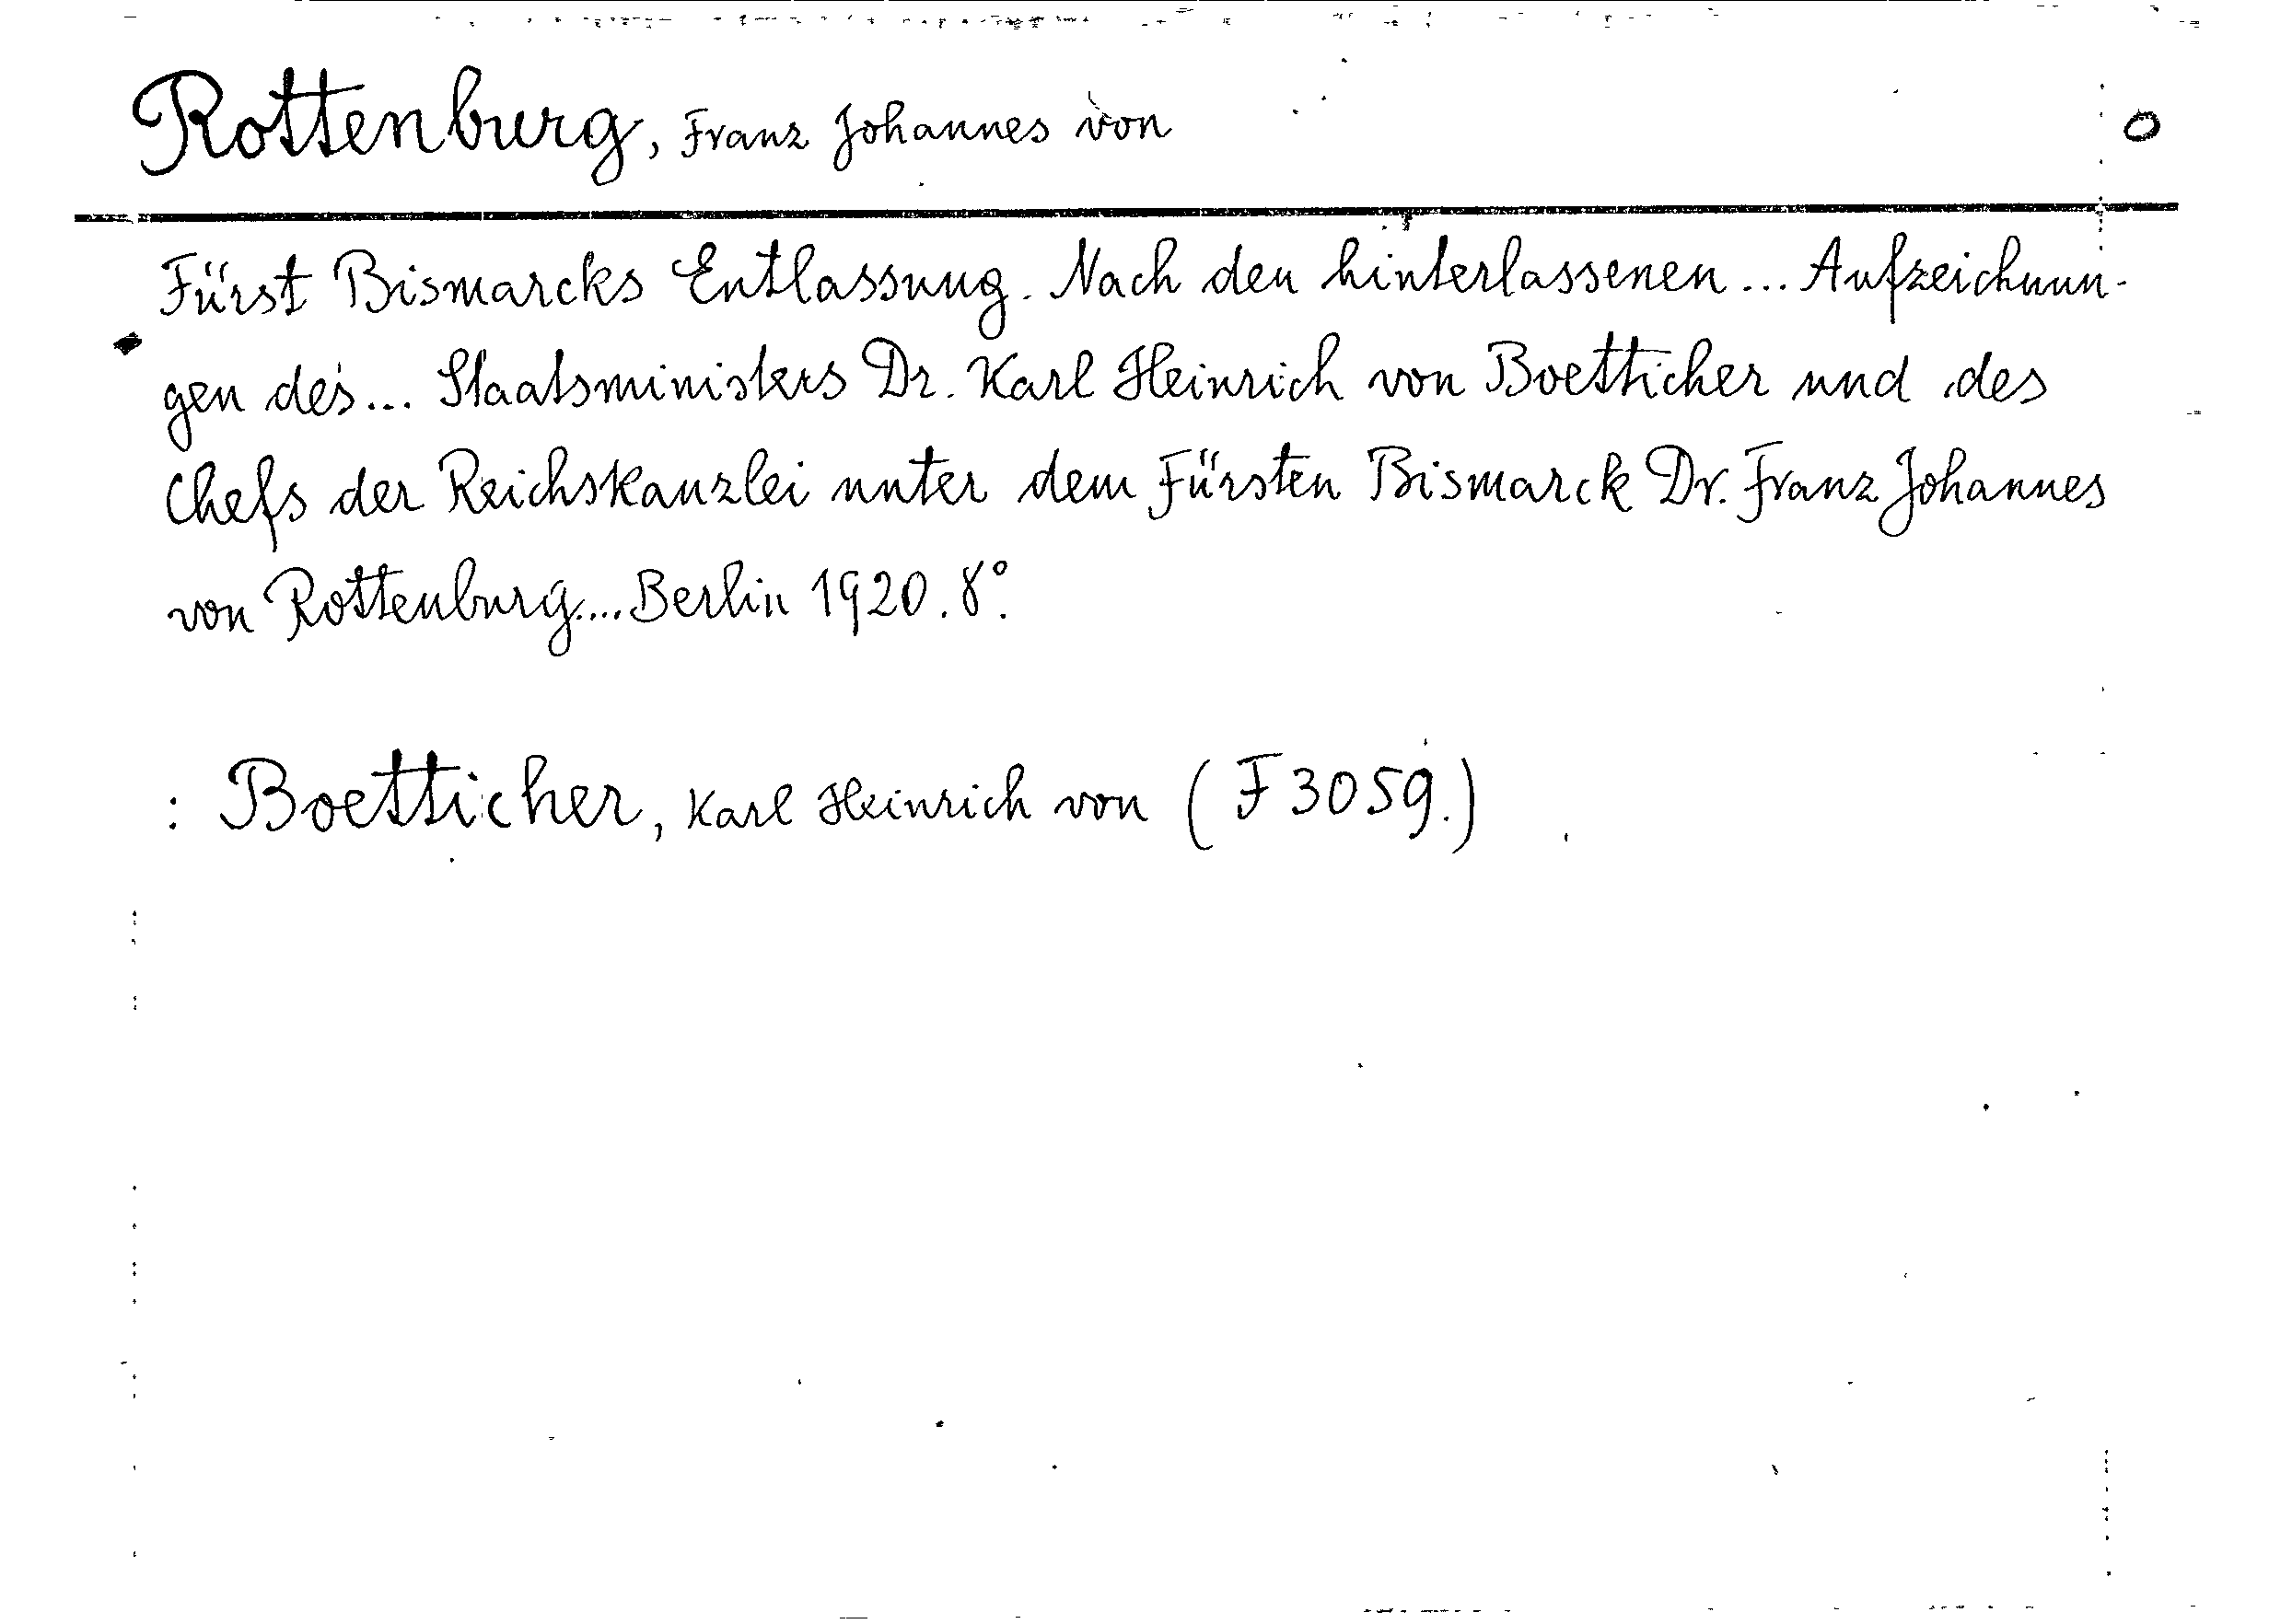 Rottenburg, Franz Johannes von O
Fürst Bismarcks Entlassung. Nach den hinterlassenen... Aufzeichnun-
gen des... Staatsministers Dr. Karl Heinrich von Boetticher und des
Chefs der Reichskanzlei unter dem Fürsten Bismarck Dr. Franz Johannes
von Rottenburg.... Berlin 1920. 8°.
: Boetticher, Karl Heinrich von (F 3059.)